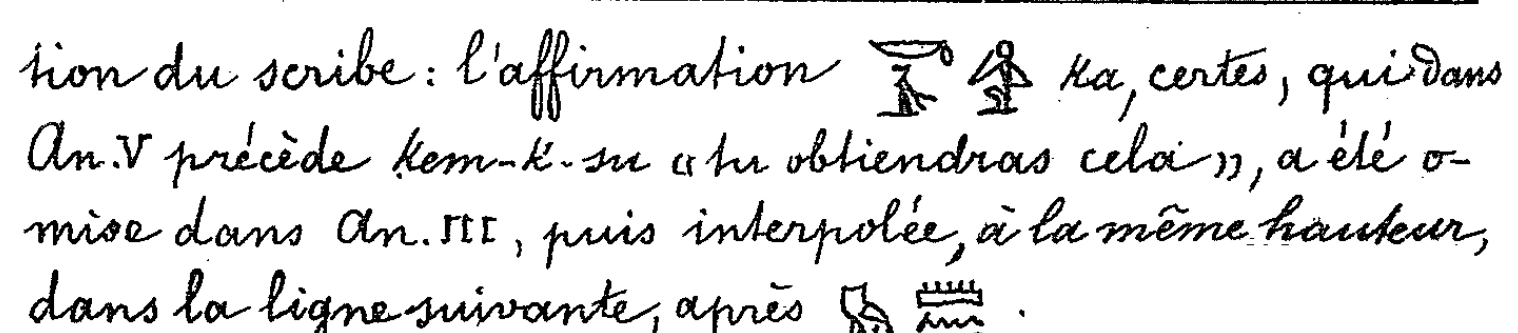 tion du scribe : l'affirmation ka, certes, qui dans
An. V précède kem-k-su « tu obtiendras cela », a été o-
mise dans An. III, puis interpolée, à la même hauteur,
dans la ligne suivante, après .